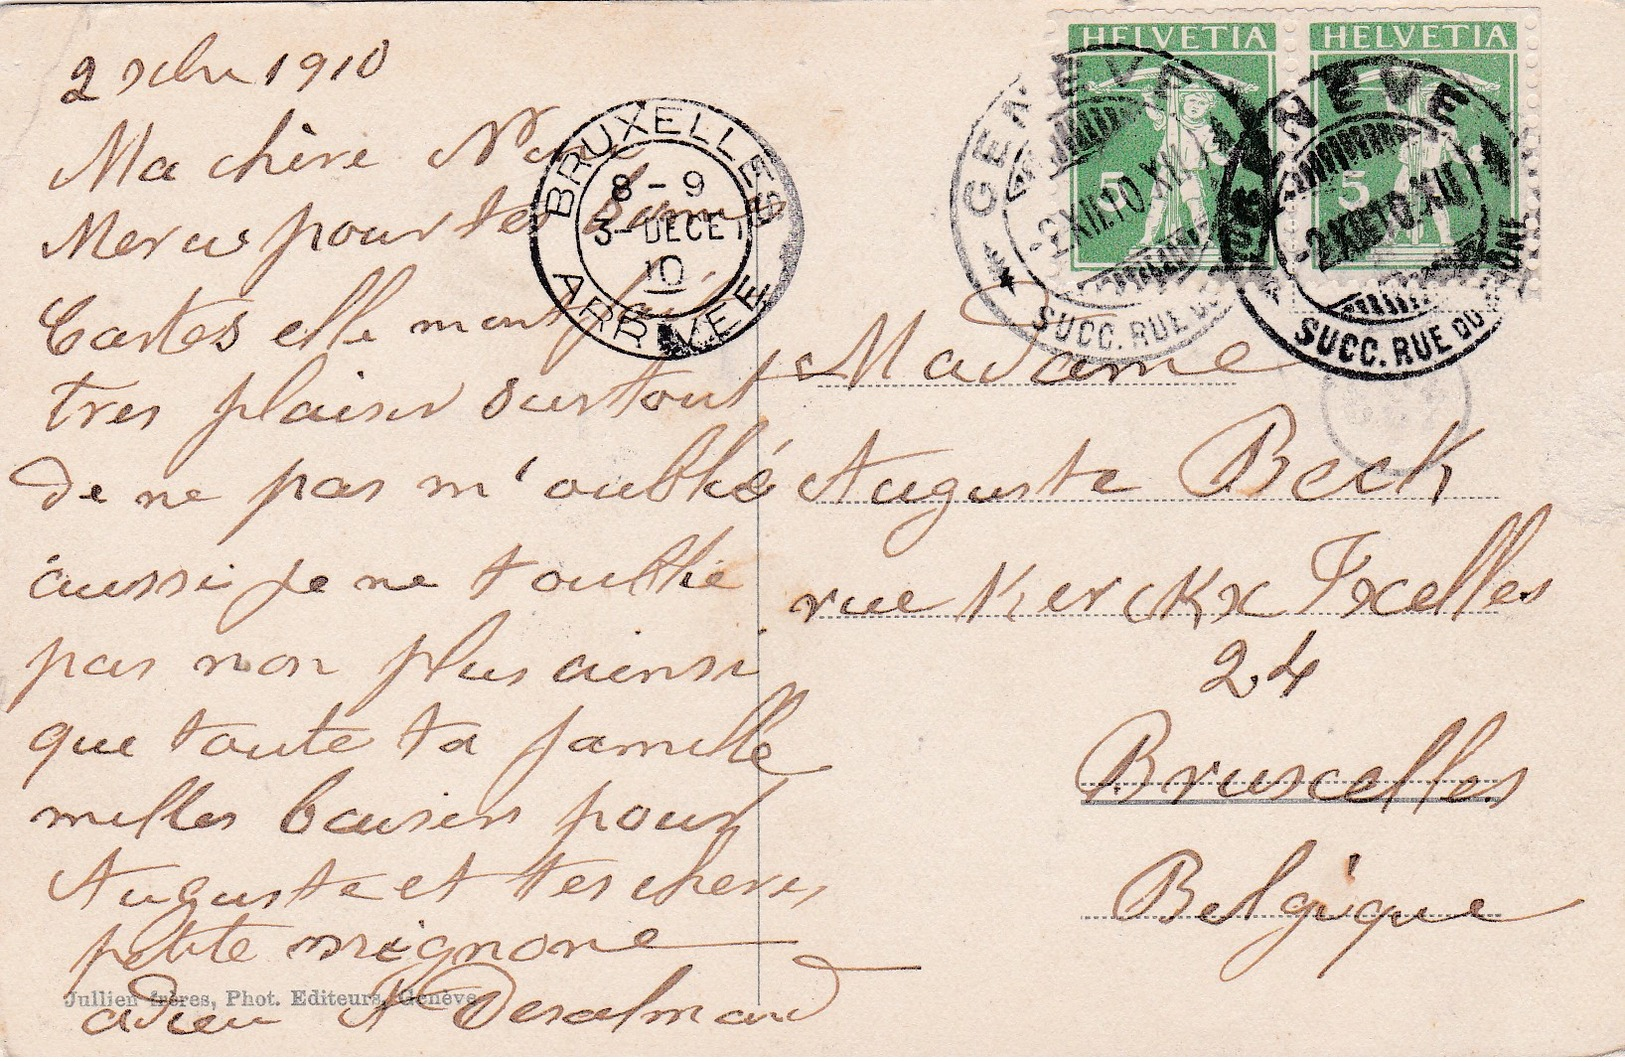 1910
Ma chère
Mercis pour tes
Cartes elle mont
tres plaisir surtout
de ne pas m'oublié
aussi je ne toublie
pas non plus ainsi
que toute ta famille
milles baisers pour
Auguste et tes cheres
petite mignone
adieu
Jullien frères, Phot. Editeurs, Genève
BRUXELLES
8-9
3-DECE
10
ARRIVEE
HELVETIA
5
HELVETIA
5
GENEVE
-2.XII.10.XII
SUCC. RUE
GENEVE
-2.XII.10.XII
SUCC. RUE DU RHONE
Madame
Auguste Beck
rue Kerckx Ixelles
24
Bruxelles
Belgique